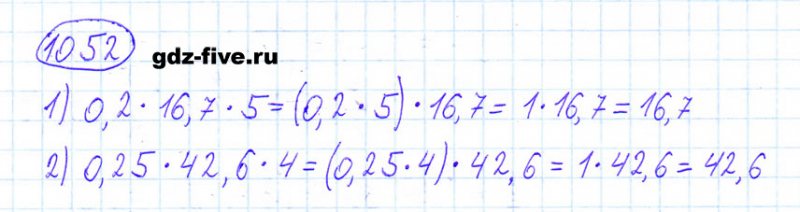 1052
gdz-five.ru
1) 0,2 · 16,7 · 5 = (0,2 · 5) · 16,7 = 1 · 16,7 = 16,7
2) 0,25 · 42,6 · 4 = (0,25 · 4) · 42,6 = 1 · 42,6 = 42,6